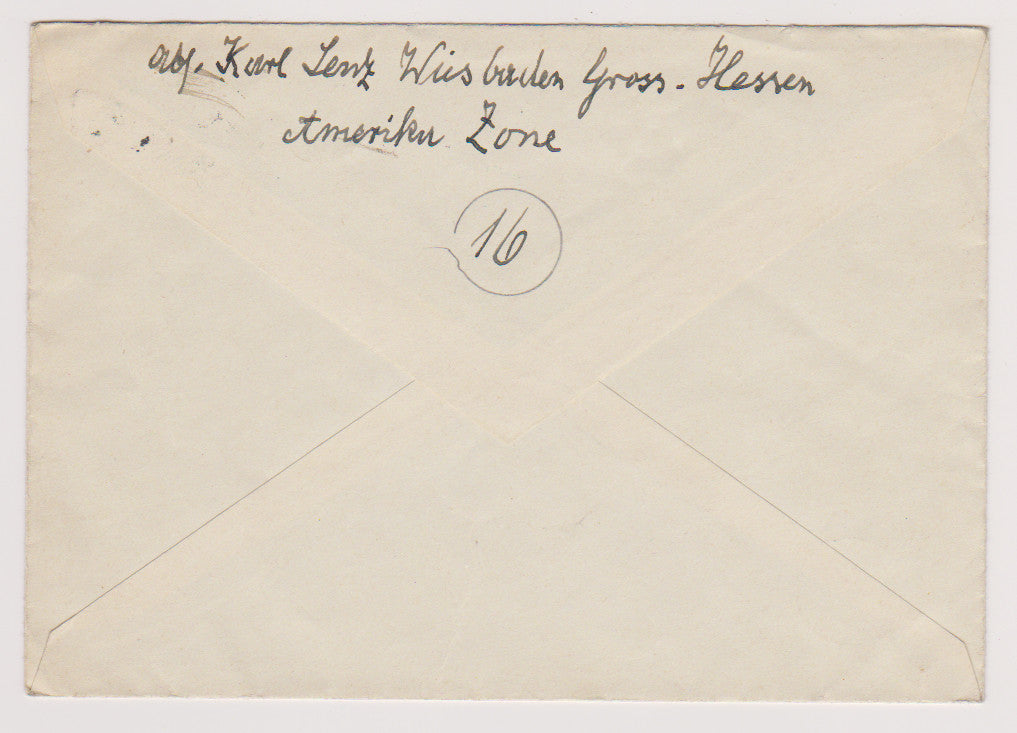 Abs. Karl Lenz Wiesbaden Gross-Hessen
Amerika Zone
16